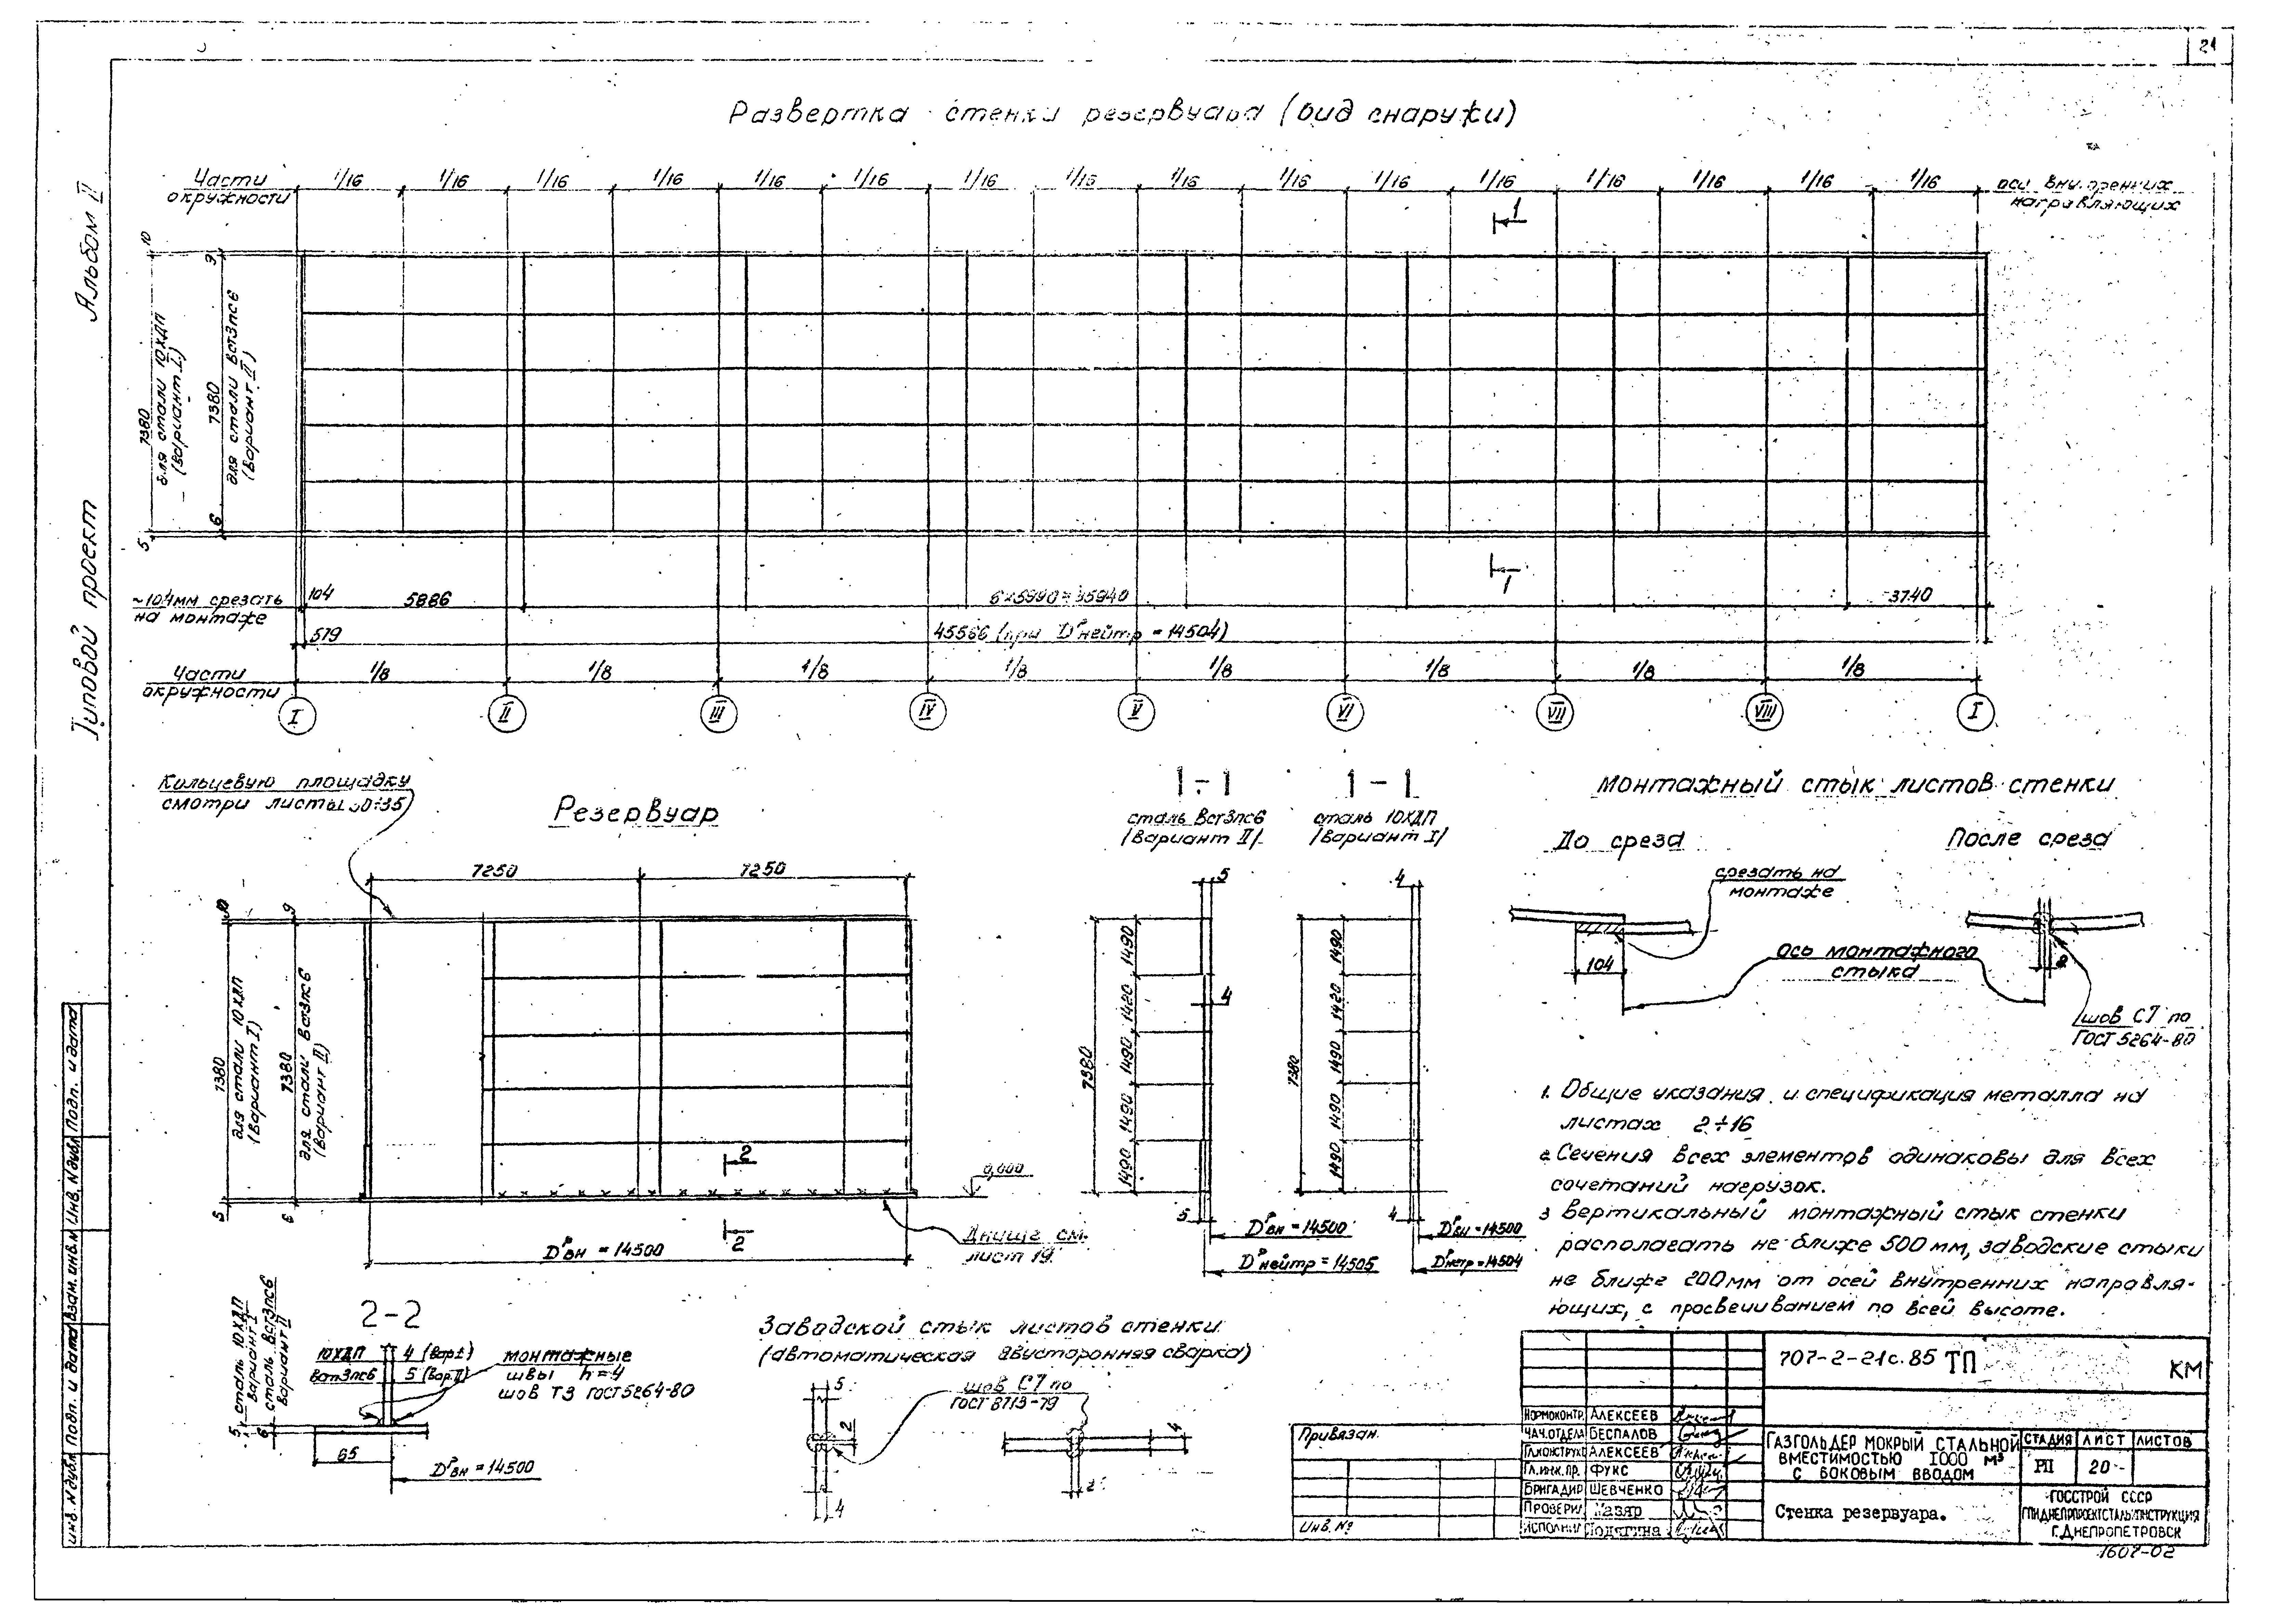 21
Развертка стенки резервуара (вид снаружи)
Альбом II
Типовой проект
Части
окружности
1/16 1/16 1/16 1/16 1/16 1/16 1/16 1/16 1/16 1/16 1/16 1/16 1/16 1/16 1/16 1/16
оси внутренних
направляющих
1
10
7380
для стали 10ХДП
(вариант I)
5
9
7380
для стали ВСт3пс6
(вариант II)
6
1
~104мм срезать
на монтаже
104
5886
6×5990=35940
3740
579
45566 (при Dнейтр = 14504)
Части
окружности
1/8 1/8 1/8 1/8 1/8 1/8 1/8 1/8
I II III IV V VI VII VIII I
Кольцевую площадку
смотри листы 30÷35
Резервуар
7250 7250
10
7380
для стали 10ХДП
(вариант I)
5
9
7380
для стали ВСт3пс6
(вариант II)
6
2
2
0,000
Днище см.
лист 19
DРвн = 14500
1-1
сталь ВСт3пс6
/вариант II/
5
7380
1490 1420 1490 1490 1490
4
5
DРвн = 14500
DРнейтр = 14505
1-1
сталь 10ХДП
/вариант I/
4
7380
1490 1420 1490 1490 1490
4
DРвн = 14500
DРнетр = 14504
Монтажный стык листов стенки
До среза
После среза
срезать на
монтаже
104
Ось монтажного
стыка
2
шов С7 по
ГОСТ 5264-80
1. Общие указания и спецификация металла на
листах 2÷16
2. Сечения всех элементов одинаковы для всех
сочетаний нагрузок.
3 Вертикальный монтажный стык стенки
располагать не ближе 500 мм, заводские стыки
не ближе 200 мм от осей внутренних направля-
ющих, с просвечиванием по всей высоте.
2-2
сталь 10ХДП
вариант I
сталь ВСт3пс6
вариант II
10ХДП 4 (Вар I)
Вст3пс6 5 (Вар. II)
монтажные
швы h=4
шов Т3 ГОСТ 5264-80
5
6
65
DРвн = 14500
Заводской стык листов стенки
(автоматическая двусторонняя сварка)
5
2
4
шов С7 по
ГОСТ 8713-79
4
2
Привязан
Инв. №
707-2-21с.85 ТП
КМ
Нормоконтр. Алексеев
Нач.отдела Беспалов
Гл.конструк Алексеев
Гл.инж.пр. Фукс
Бригадир Шевченко
Проверил Мазяр
Исполнил
Газгольдер мокрый стальной
вместимостью 1000 м³
с боковым вводом
Стадия Лист Листов
РП 20
Стенка резервуара.
Госстрой СССР
ГПИДнепрпроектстальконструкция
г.Днепропетровск
1607-02
Инв. № дубл. Подп. и дата Взам. инв. № Инв. № дубл. Подп. и дата